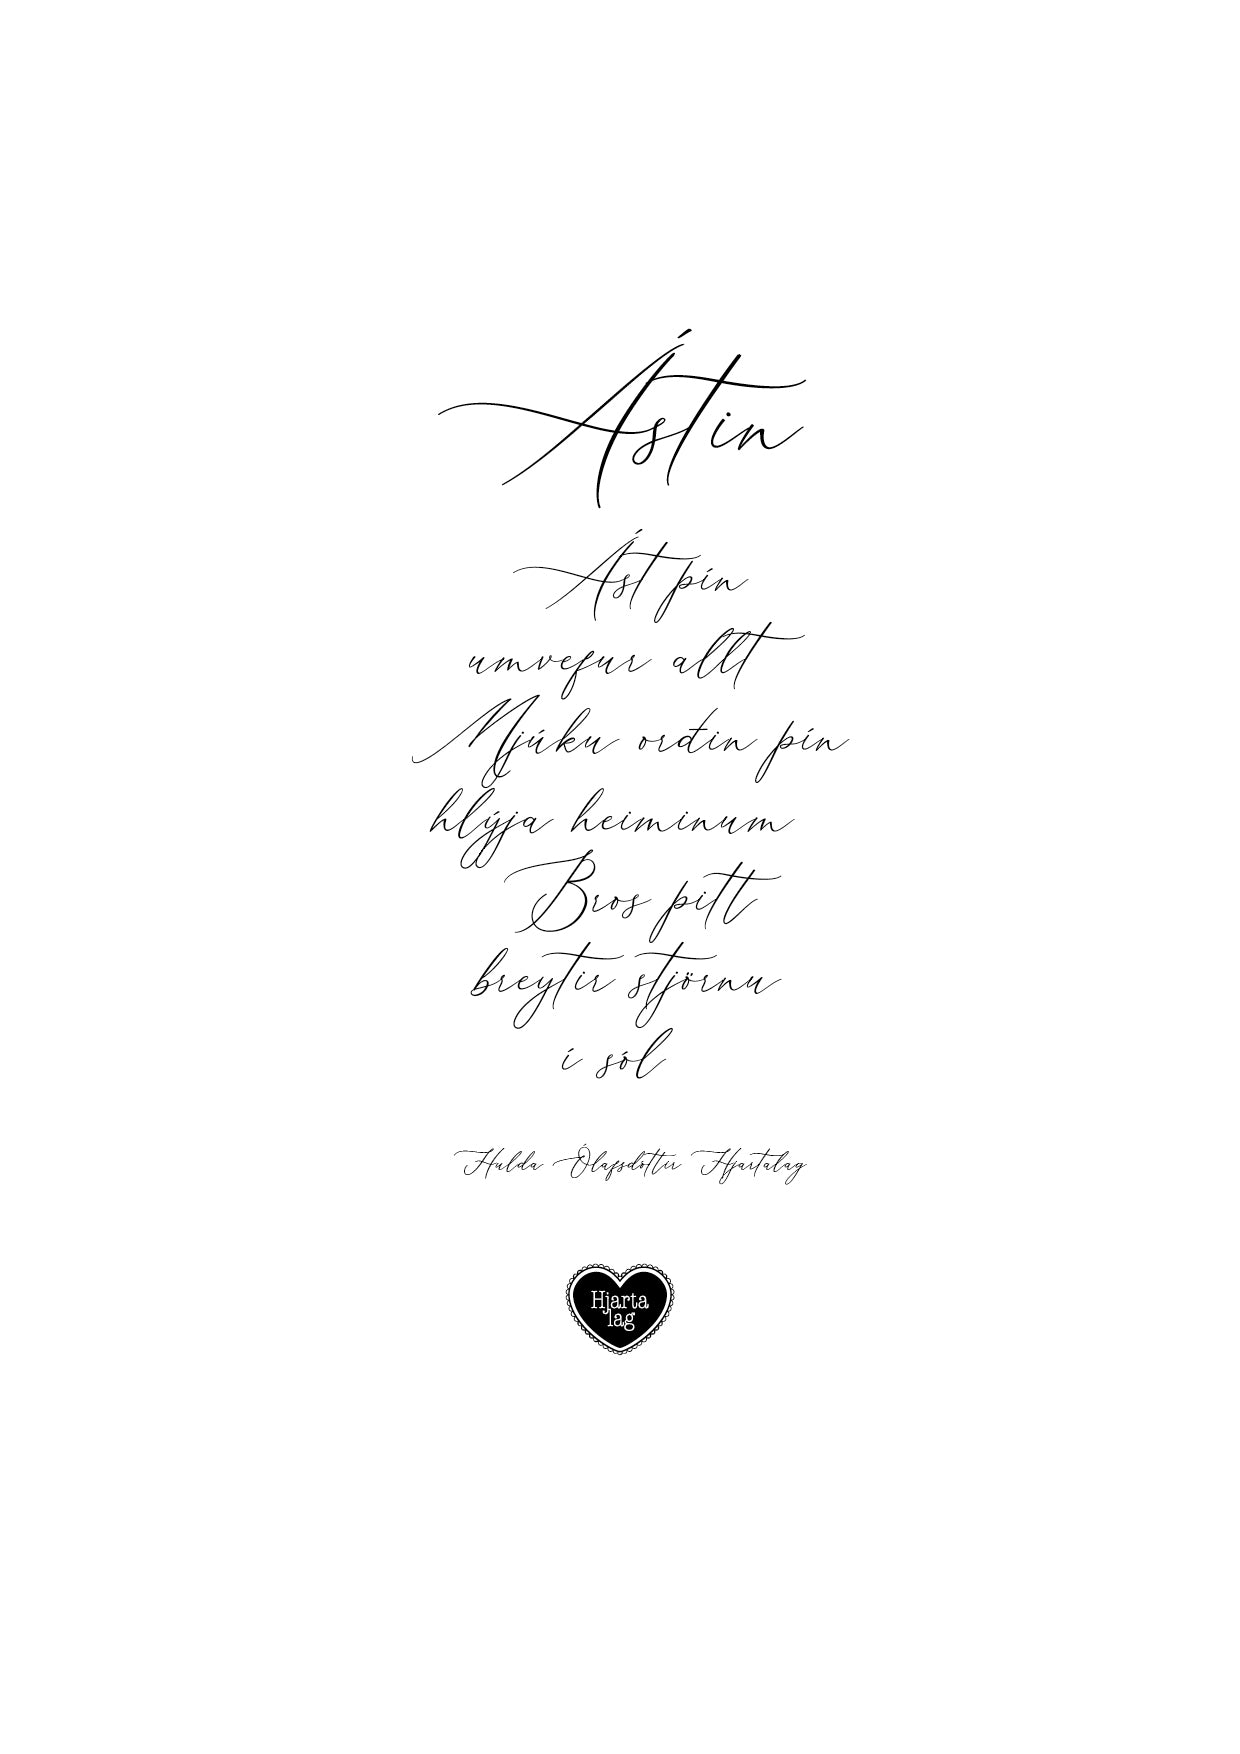 Ástin
Ást þín
umvefur allt
Mjúku orðin þín
hlýja heiminum
Bros þitt
breytir stjörnu
í sól
Hulda Ólafsdóttir Hjartalag
Hjarta
lag